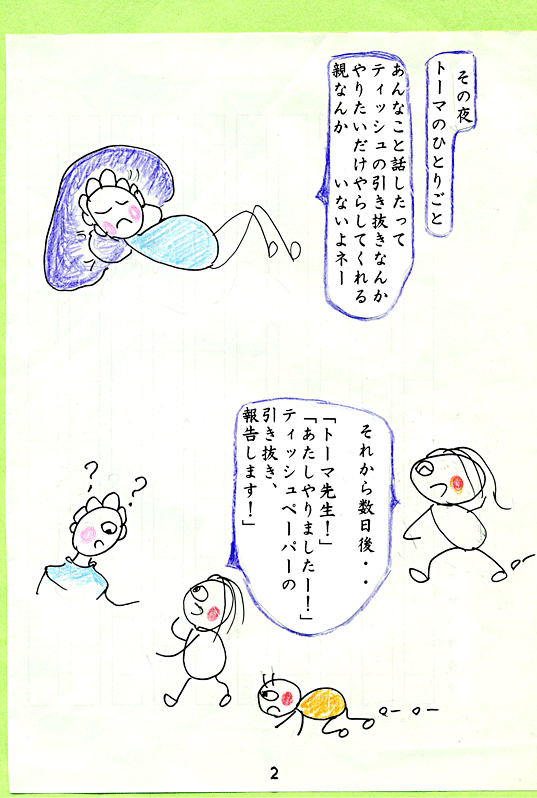 その夜
トーマのひとりごと
あんなこと話したって
ティッシュの引き抜きなんか
やりたいだけやらしてくれる
親なんか　いないよネー
それから数日後・・
「トーマ先生！」
「あたしやりましたー！」
ティッシュペーパーの
引き抜き、
報告します！」
？
？
2